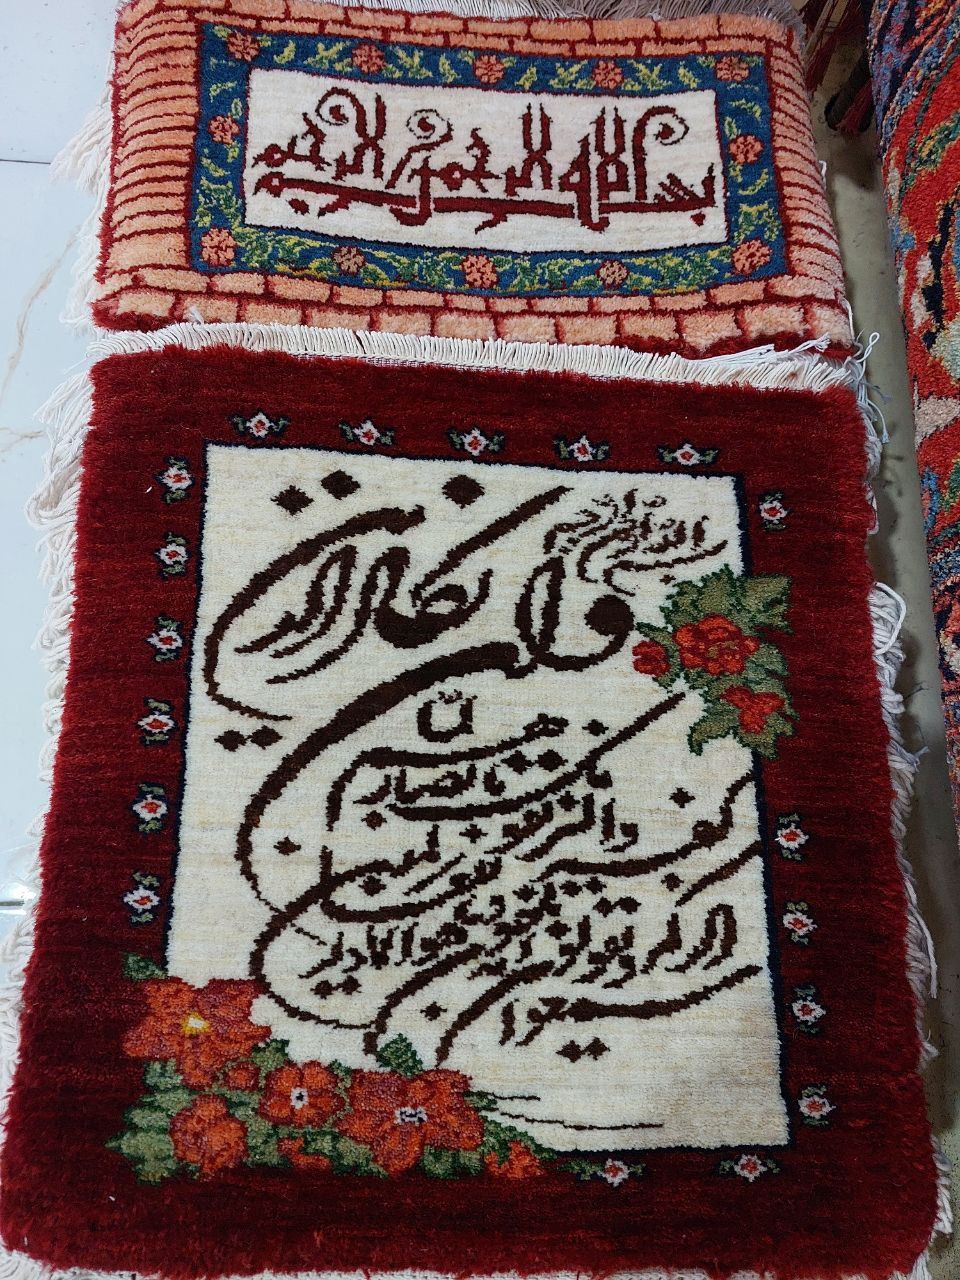 بسم الله الرحمن الرحیم
بسم الله الرحمن الرحیم
و ان یکاد الذین
کفروا لیزلقونک بابصارهم لما
سمعوا الذکر و یقولون انه لمجنون و ما هو الا ذکر